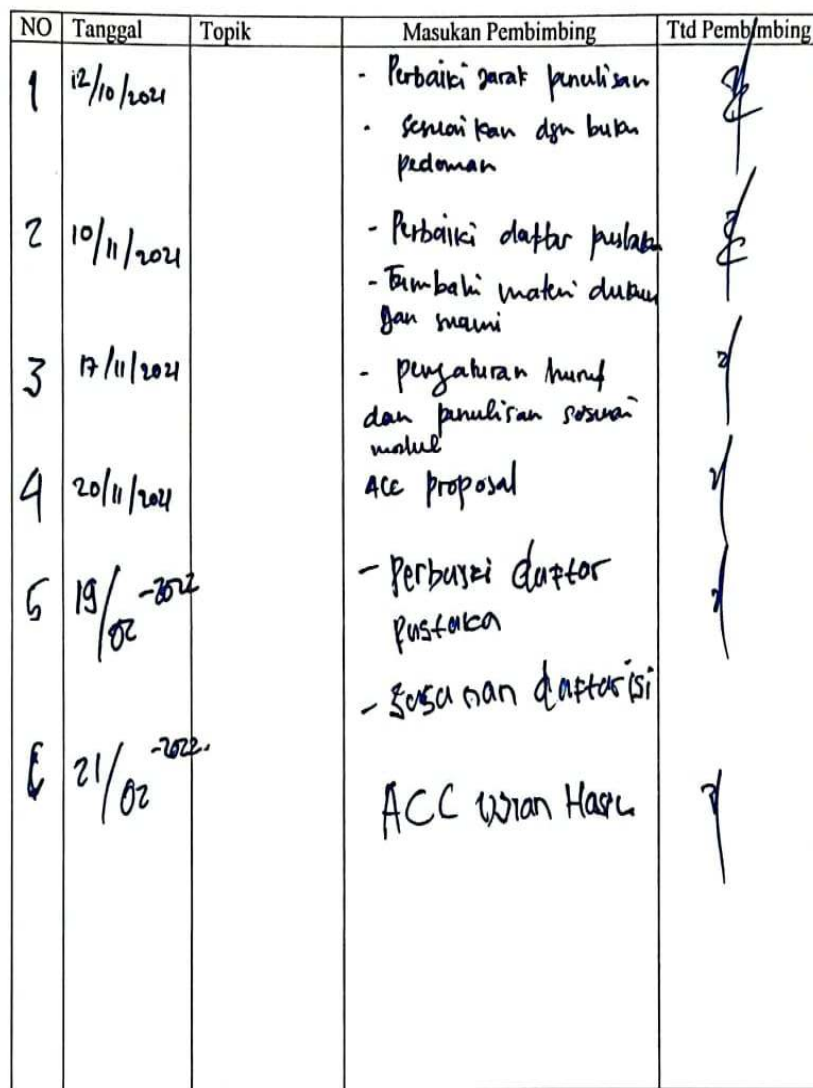 NO Tanggal Topik Masukan Pembimbing Ttd Pembimbing
1 12/10/2021 - Perbaiki jarak penulisan
- sesuaikan dgn buku
pedoman
2 10/11/2021 - Perbaiki daftar pustaka
- Tambahi materi dukun
gan suami
3 17/11/2021 - pengaturan huruf
dan penulisan sesuai
4 20/11/2021 ACC proposal
5 19/02-2022 - Perbaiki daftar
pustaka
- Susunan daftar isi
6 21/02-2022. ACC Ujian Hasil